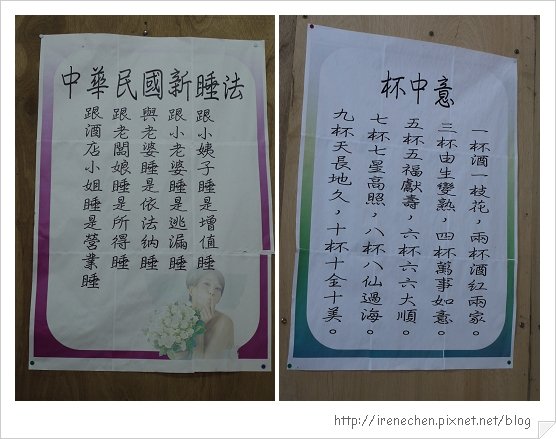 中華民國新睡法
跟小姨子睡是增值睡
跟小老婆睡是逃漏睡
與老婆睡是依法納睡
跟老闆娘睡是所得睡
跟酒店小姐睡是營業睡
杯中意
一杯酒一枝花，兩杯酒紅兩家。
三杯由生變熟，四杯萬事如意。
五杯五福獻壽，六杯六六大順。
七杯七星高照，八杯八仙過海。
九杯天長地久，十杯十全十美。
http://irenechen.pixnet.net/blog